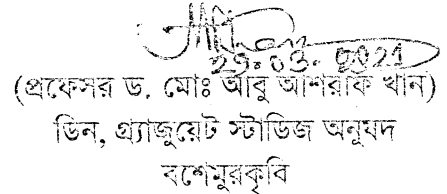 29.03.2021
(প্রফেসর ড. মোঃ আবু আশরাফ খান)
ডিন, গ্র্যাজুয়েট স্টাডিজ অনুষদ
বশেমুরকৃবি